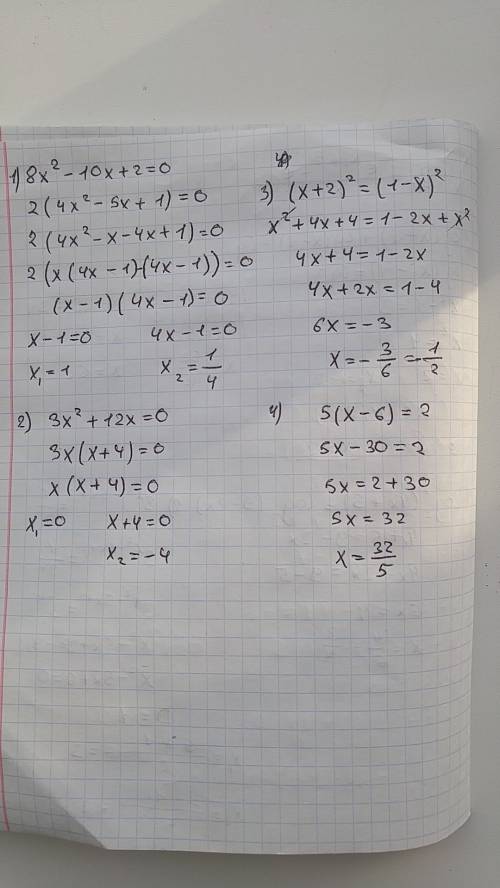 1) 8x² - 10x + 2 = 0
2(4x² - 5x + 1) = 0
2(4x² - x - 4x + 1) = 0
2(x(4x - 1) - (4x - 1)) = 0
(x - 1)(4x - 1) = 0
x - 1 = 0 4x - 1 = 0
x₁ = 1 x₂ = 1/4
2) 3x² + 12x = 0
3x(x + 4) = 0
x(x + 4) = 0
x₁ = 0 x + 4 = 0
x₂ = -4
3) (x + 2)² = (1 - x)²
x² + 4x + 4 = 1 - 2x + x²
4x + 4 = 1 - 2x
4x + 2x = 1 - 4
6x = -3
x = -3/6 = -1/2
4) 5(x - 6) = 2
5x - 30 = 2
5x = 2 + 30
5x = 32
x = 32/5